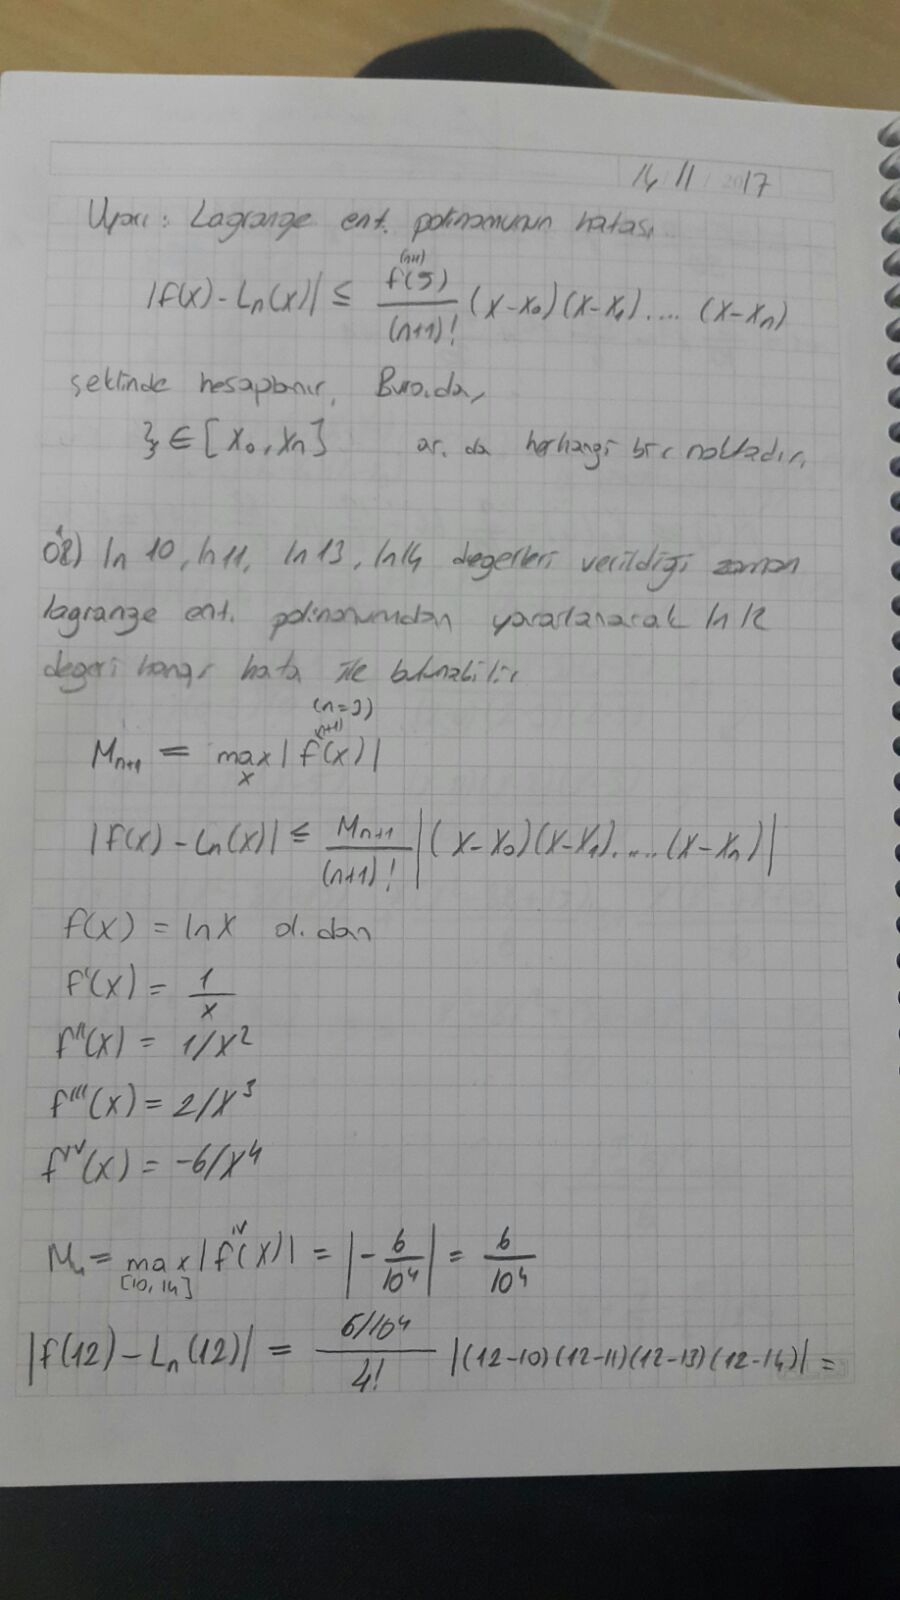 14 / 11 / 2017
Uyarı: Lagrange ent. polinomunun hatası
|f(x) - Ln(x)| ≤ f⁽ⁿ⁺¹⁾(ξ) / (n+1)! (x-x₀)(x-x₁).... (x-xn)
şeklinde hesaplanır. Burada,
ξ ∈ [x₀, xn] ar. da herhangi bir noktadır.
ÖR) ln 10, ln 11, ln 13, ln 14 değerleri verildiği zaman
lagrange ent. polinomundan yararlanarak ln 12
değeri hangi hata ile bulunabilir
(n=3)
Mn+1 = max x |f⁽ⁿ⁺¹⁾(x)|
|f(x) - Ln(x)| ≤ Mn+1 / (n+1)! |(x-x₀)(x-x₁).....(x-xn)|
f(x) = ln x ol. dan
f'(x) = 1/x
f''(x) = 1/x²
f'''(x) = 2/x³
fⁱᵛ(x) = -6/x⁴
M₄ = max [10, 14] |fⁱᵛ(x)| = |- 6/10⁴| = 6/10⁴
|f(12) - Ln(12)| = 6/10⁴ / 4! |(12-10)(12-11)(12-13)(12-14)| =